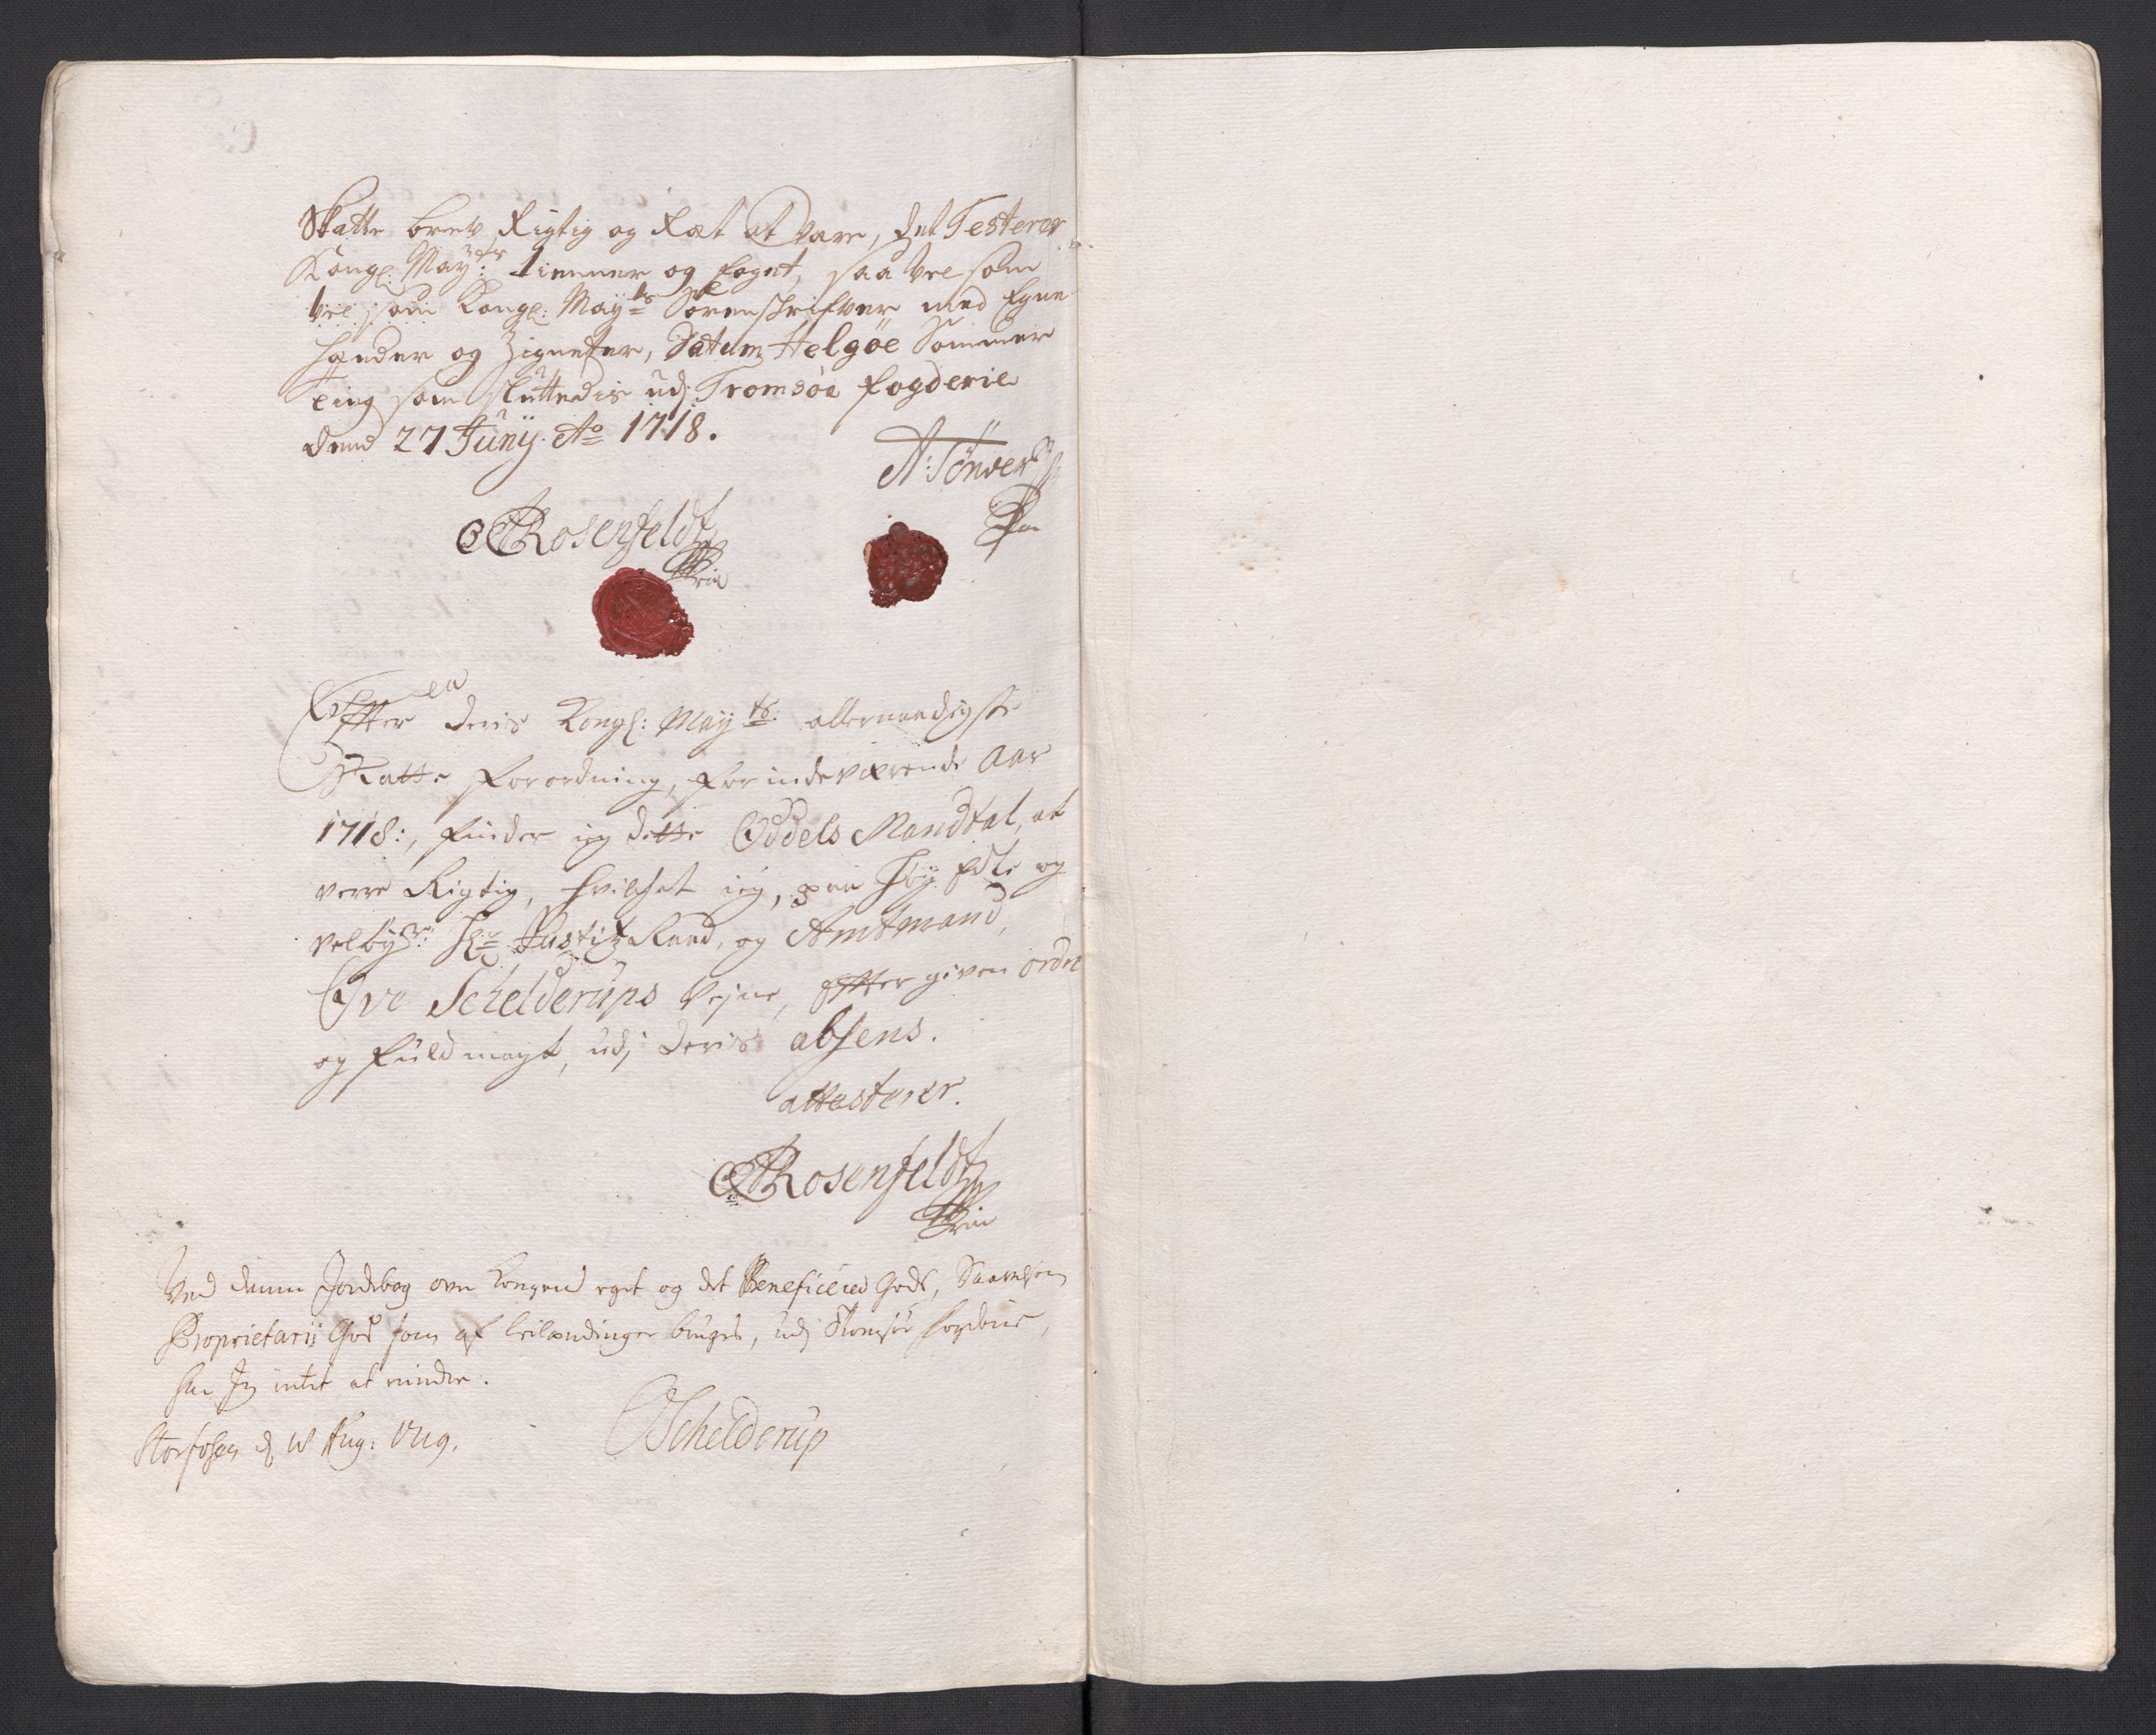 Skatte brev Rigtig og Ræt at Være, det Testerer
Kongl: May:ts tienner og foget, saa vel som
vel som Kongl: May:ts Sorenschrifver med Egne
hænder og Zigneter, Datum Helgöe Sommer
ting som sluttedis udj Tromsöe fogderie
dend 27 Juny. Ao 1718.
A: Tönder
Rosenfeldt
Effter deris Kongl: May:ts allernaadigste
Skatte forordning, for indeværende Aar
1718:, finder ieg dette Oddels Mandtal, at
verre Rigtig, hvilchet ieg, paa høy Edle og
velbyr: Hr Justitz Raad, og Amtmand,
Ove Schelderups Vegne, effter given ordre
og fuldmagt, udj deris absens.
attesterer.
Rosenfeldt
Ved denne Jordebog over Kongens eget og det Beneficered Gods, Saavelsom
Proprietarii Gods som af leilændinger bruges, udj Tromsöe fogderie,
har Jeg intet at erindre.
Storfosen d Aug: 1719.
OSchelderup